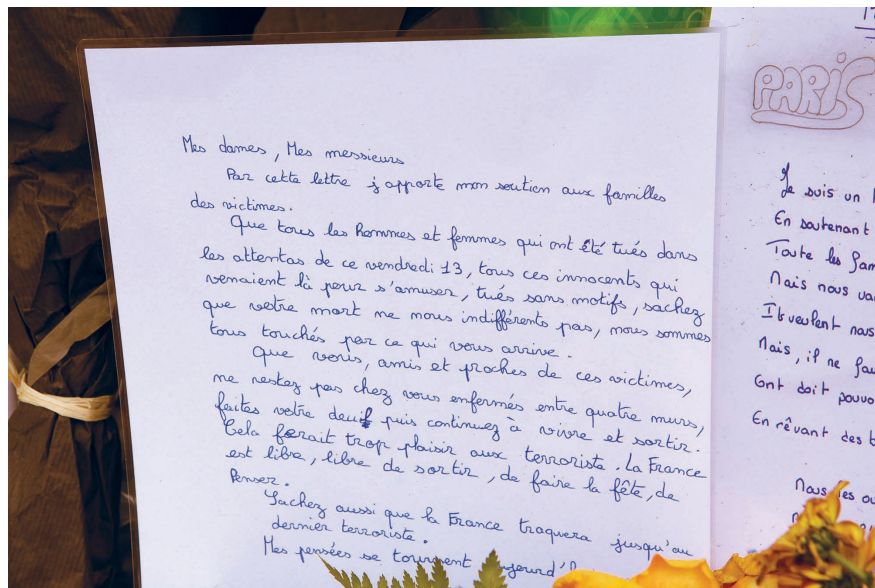 Mes dames, Mes messieurs
Par cette lettre j'apporte mon soutien aux familles
des victimes.
Que tous les hommes et femmes qui ont été tués dans
les attentas de ce vendredi 13, tous ces innocents qui
venaient là pour s'amuser, tués sans motifs, sachez
que votre mort ne nous indifférents pas, nous sommes
tous touchés par ce qui vous arrive.
Que vous, amis et proches de ces victimes,
ne restez pas chez vous enfermés entre quatre murs,
faites votre deuil puis continuez à vivre et sortir.
Cela ferait trop plaisir aux terroriste. La France
est libre, libre de sortir, de faire la fête, de
Penser.
Sachez aussi que la France traquera jusqu'au
dernier terroriste.
Mes pensées se tournent
PARIS
Je suis un
En soutenant
Toute les
Mais nous
Ils veulent nous
Mais, il ne
Ont doit
En rêvant des
Nous